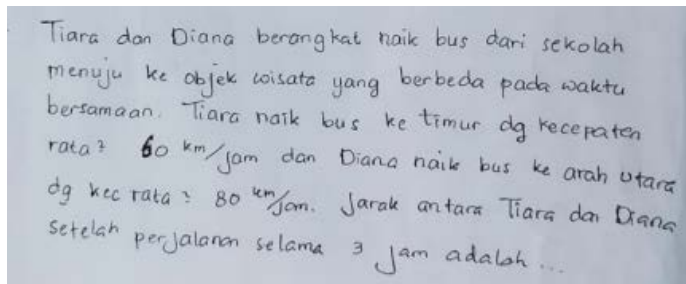 Tiara dan Diana berangkat naik bus dari sekolah
menuju ke objek wisata yang berbeda pada waktu
bersamaan. Tiara naik bus ke timur dg kecepaten
rata² 60 km/jam dan Diana naik bus ke arah utara
dg kec rata² 80 km/jam. Jarak antara Tiara dan Diana
setelah perjalanan selama 3 jam adalah ...